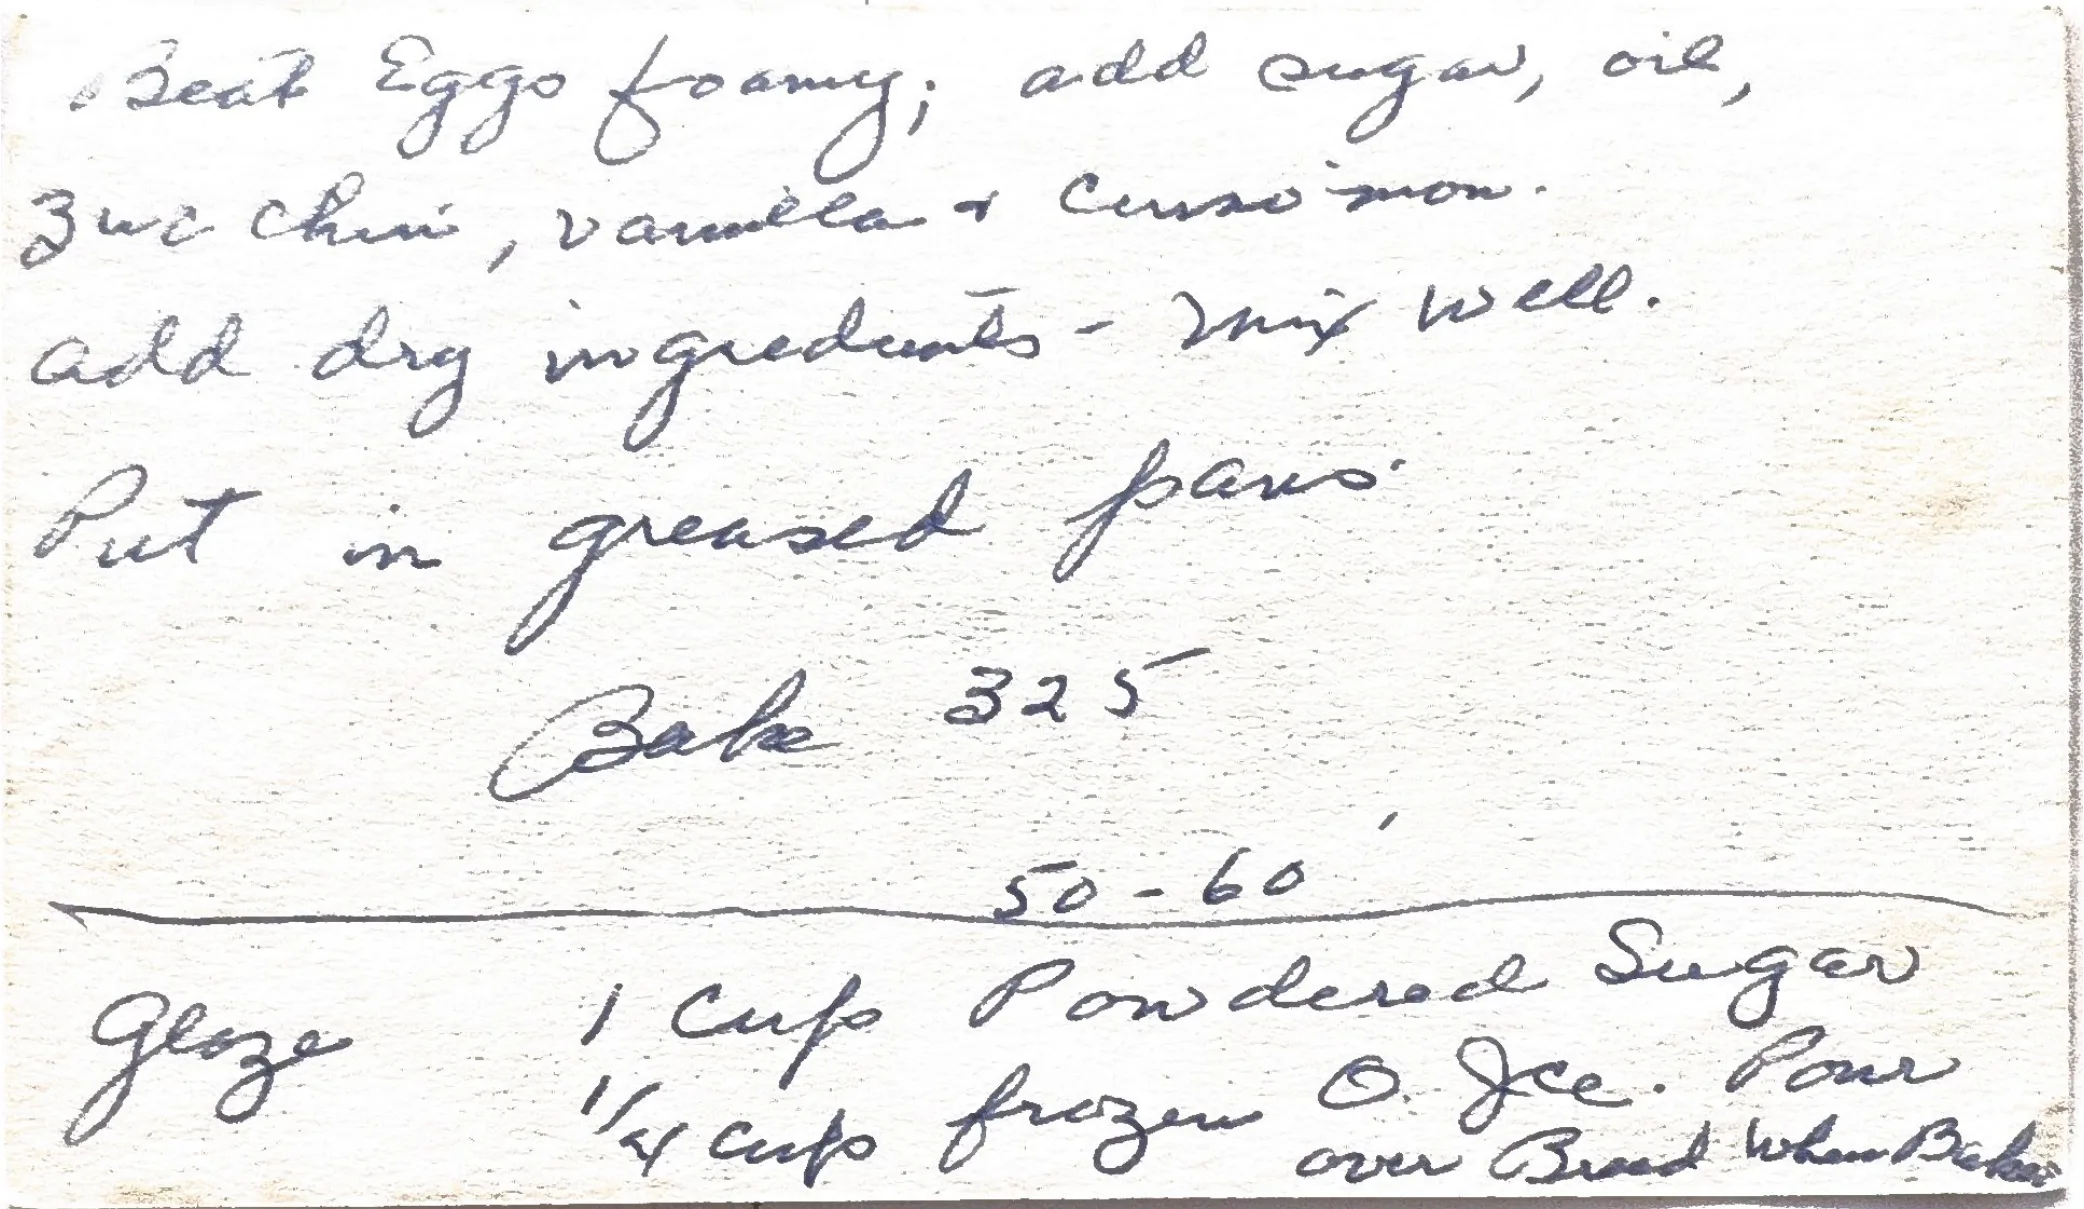 Beat Eggs foamy; add sugar, oil,
Zucchini, vanilla + Cinnimon.
add dry ingredients - Mix well.
Put in greased pans
Bake 325
50-60'
Glaze 1 Cup Powdered Sugar
1/4 cup frozen O. Jce. Pour
over Bread When Baked